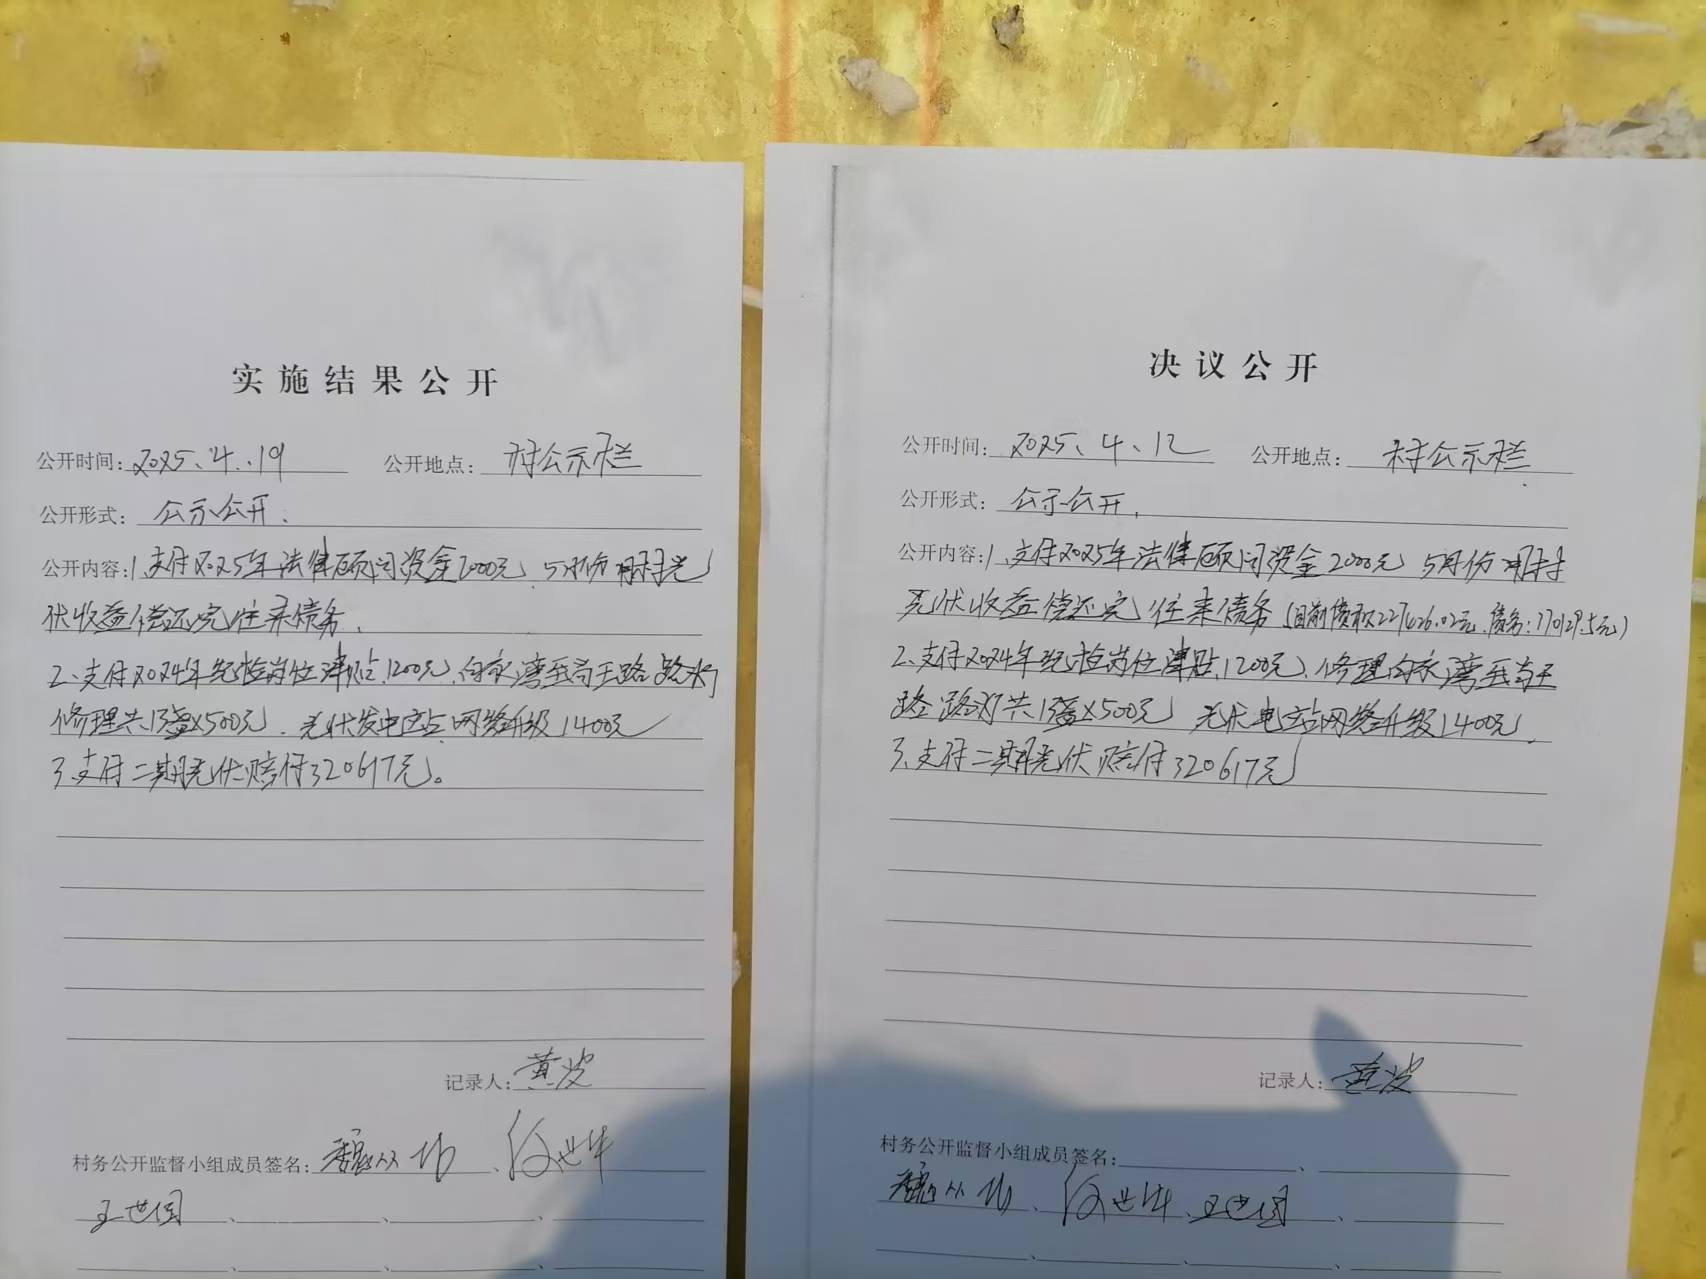 实施结果公开
公开时间：2025、4、19 公开地点：村公示栏
公开形式：公示公开、
公开内容：1、支付2025年法律顾问资金2000元、5月份用村光
伏收益偿还完往来债务、
2、支付2024年纪检岗位津贴1200元、白衣湾至高王路路灯
修理共13盏X500元、光伏发电站网签升级1400元
3、支付二期光伏赔付320617元。
记录人：黄波
村务公开监督小组成员签名：
王世国
决议公开
公开时间：2025、4、12 公开地点：村公示栏
公开形式：公示公开、
公开内容：1、支付2025年法律顾问资金2000元 5月份用村
光伏收益偿还完往来债务（目前债权227426.02元、债务：770129.5元）
2、支付2024年纪检岗位津贴1200元、修理白衣湾至高王
路路灯共13盏X500元 光伏电站网签升级1400元、
3、支付二期光伏赔付320617元
记录人：黄波
村务公开监督小组成员签名：
王世国